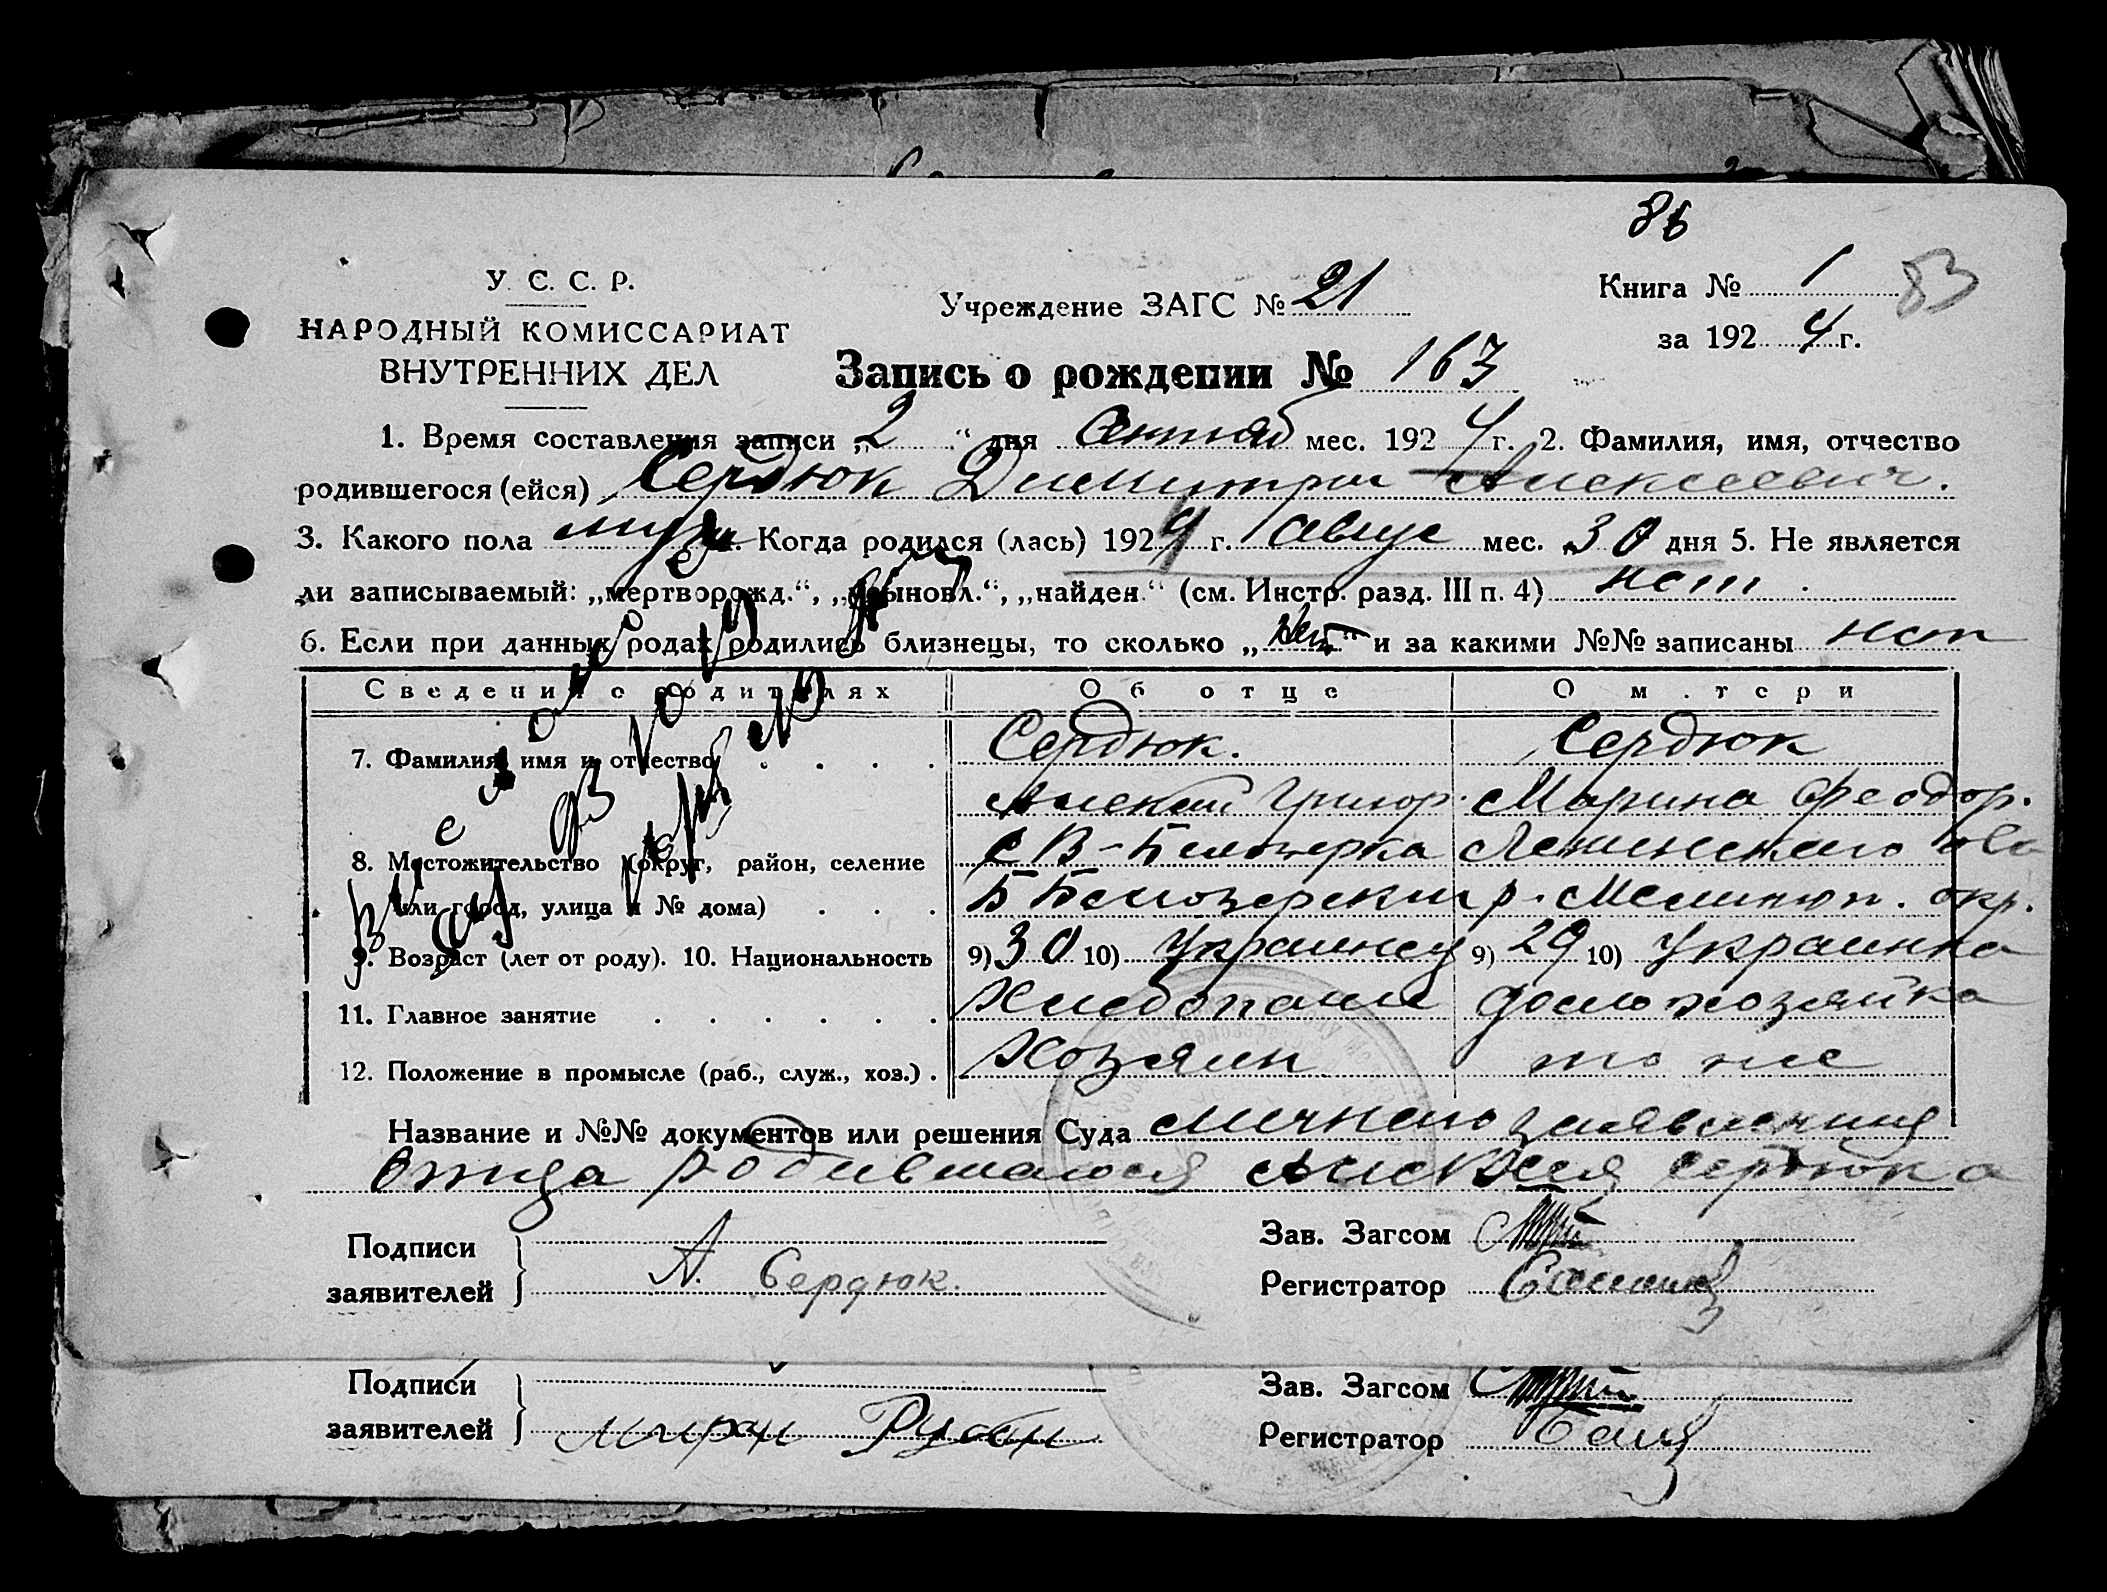 86
У. С. С. Р.
НАРОДНЫЙ КОМИССАРИАТ
ВНУТРЕННИХ ДЕЛ
Учреждение ЗАГС № 21
Книга № 1 83
за 1924 г.
Запись о рождении № 163
1. Время составления записи „2“ дня Сентяб мес. 1924 г. 2. Фамилия, имя, отчество
родившегося (ейся) Сердюк Димитрий Алексеевич.
3. Какого пола муж. Когда родился (лась) 1924 г. Авгус мес. 30 дня 5. Не является
ли записываемый: „мертворожд.“, „усыновл.“, „найден.“ (см. Инстр. разд. III п. 4) нет.
6. Если при данных родах родились близнецы, то сколько „нет“ и за какими №№ записаны нет
Сведения о родителях Об отце О матери
7. Фамилия, имя и отчество . . . . Сердюк. Сердюк
Алексей Григор. Марина Феодор.
8. Местожительство (округ, район, селение С В-Белозерка Ленинского
или город, улица и № дома) . . . Б Белозерский р. Мелитоп. окр.
9. Возраст (лет от роду). 10. Национальность 9) 30 10) Украинец 9) 29 10) Украинка
11. Главное занятие . . . . . . Хлебопаш домохозяйка
12. Положение в промысле (раб., служ., хоз.) . Хозяин то же
Название и №№ документов или решения Суда Личного заявления
Отца родившагося Алексея Сердюка
Подписи
заявителей
А. Сердюк.
Зав. Загсом
Регистратор
Подписи
заявителей
Зав. Загсом
Регистратор